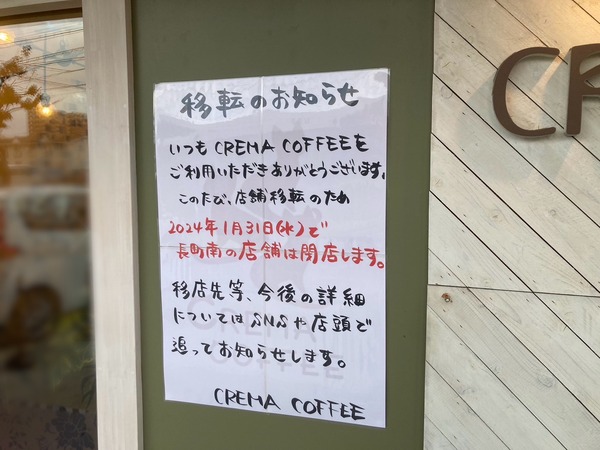 移転のお知らせ
いつも CREMA COFFEEを
ご利用いただきありがとうございます。
このたび、店舗移転のため
2024年1月31日(水)で
長町南の店舗は閉店します。
移店先等、今後の詳細
については SNSや店頭で
追ってお知らせします。
CREMA COFFEE
CR